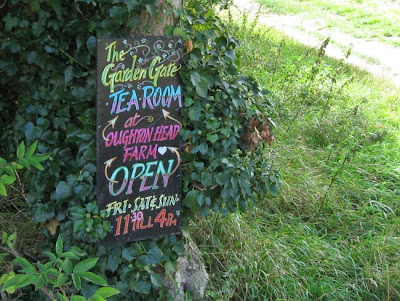 The
Garden Gate
TEA·ROOM
at
OUGHTON HEAD
FARM
OPEN
FRI·SAT&SUN·
11³⁰TILL 4PM